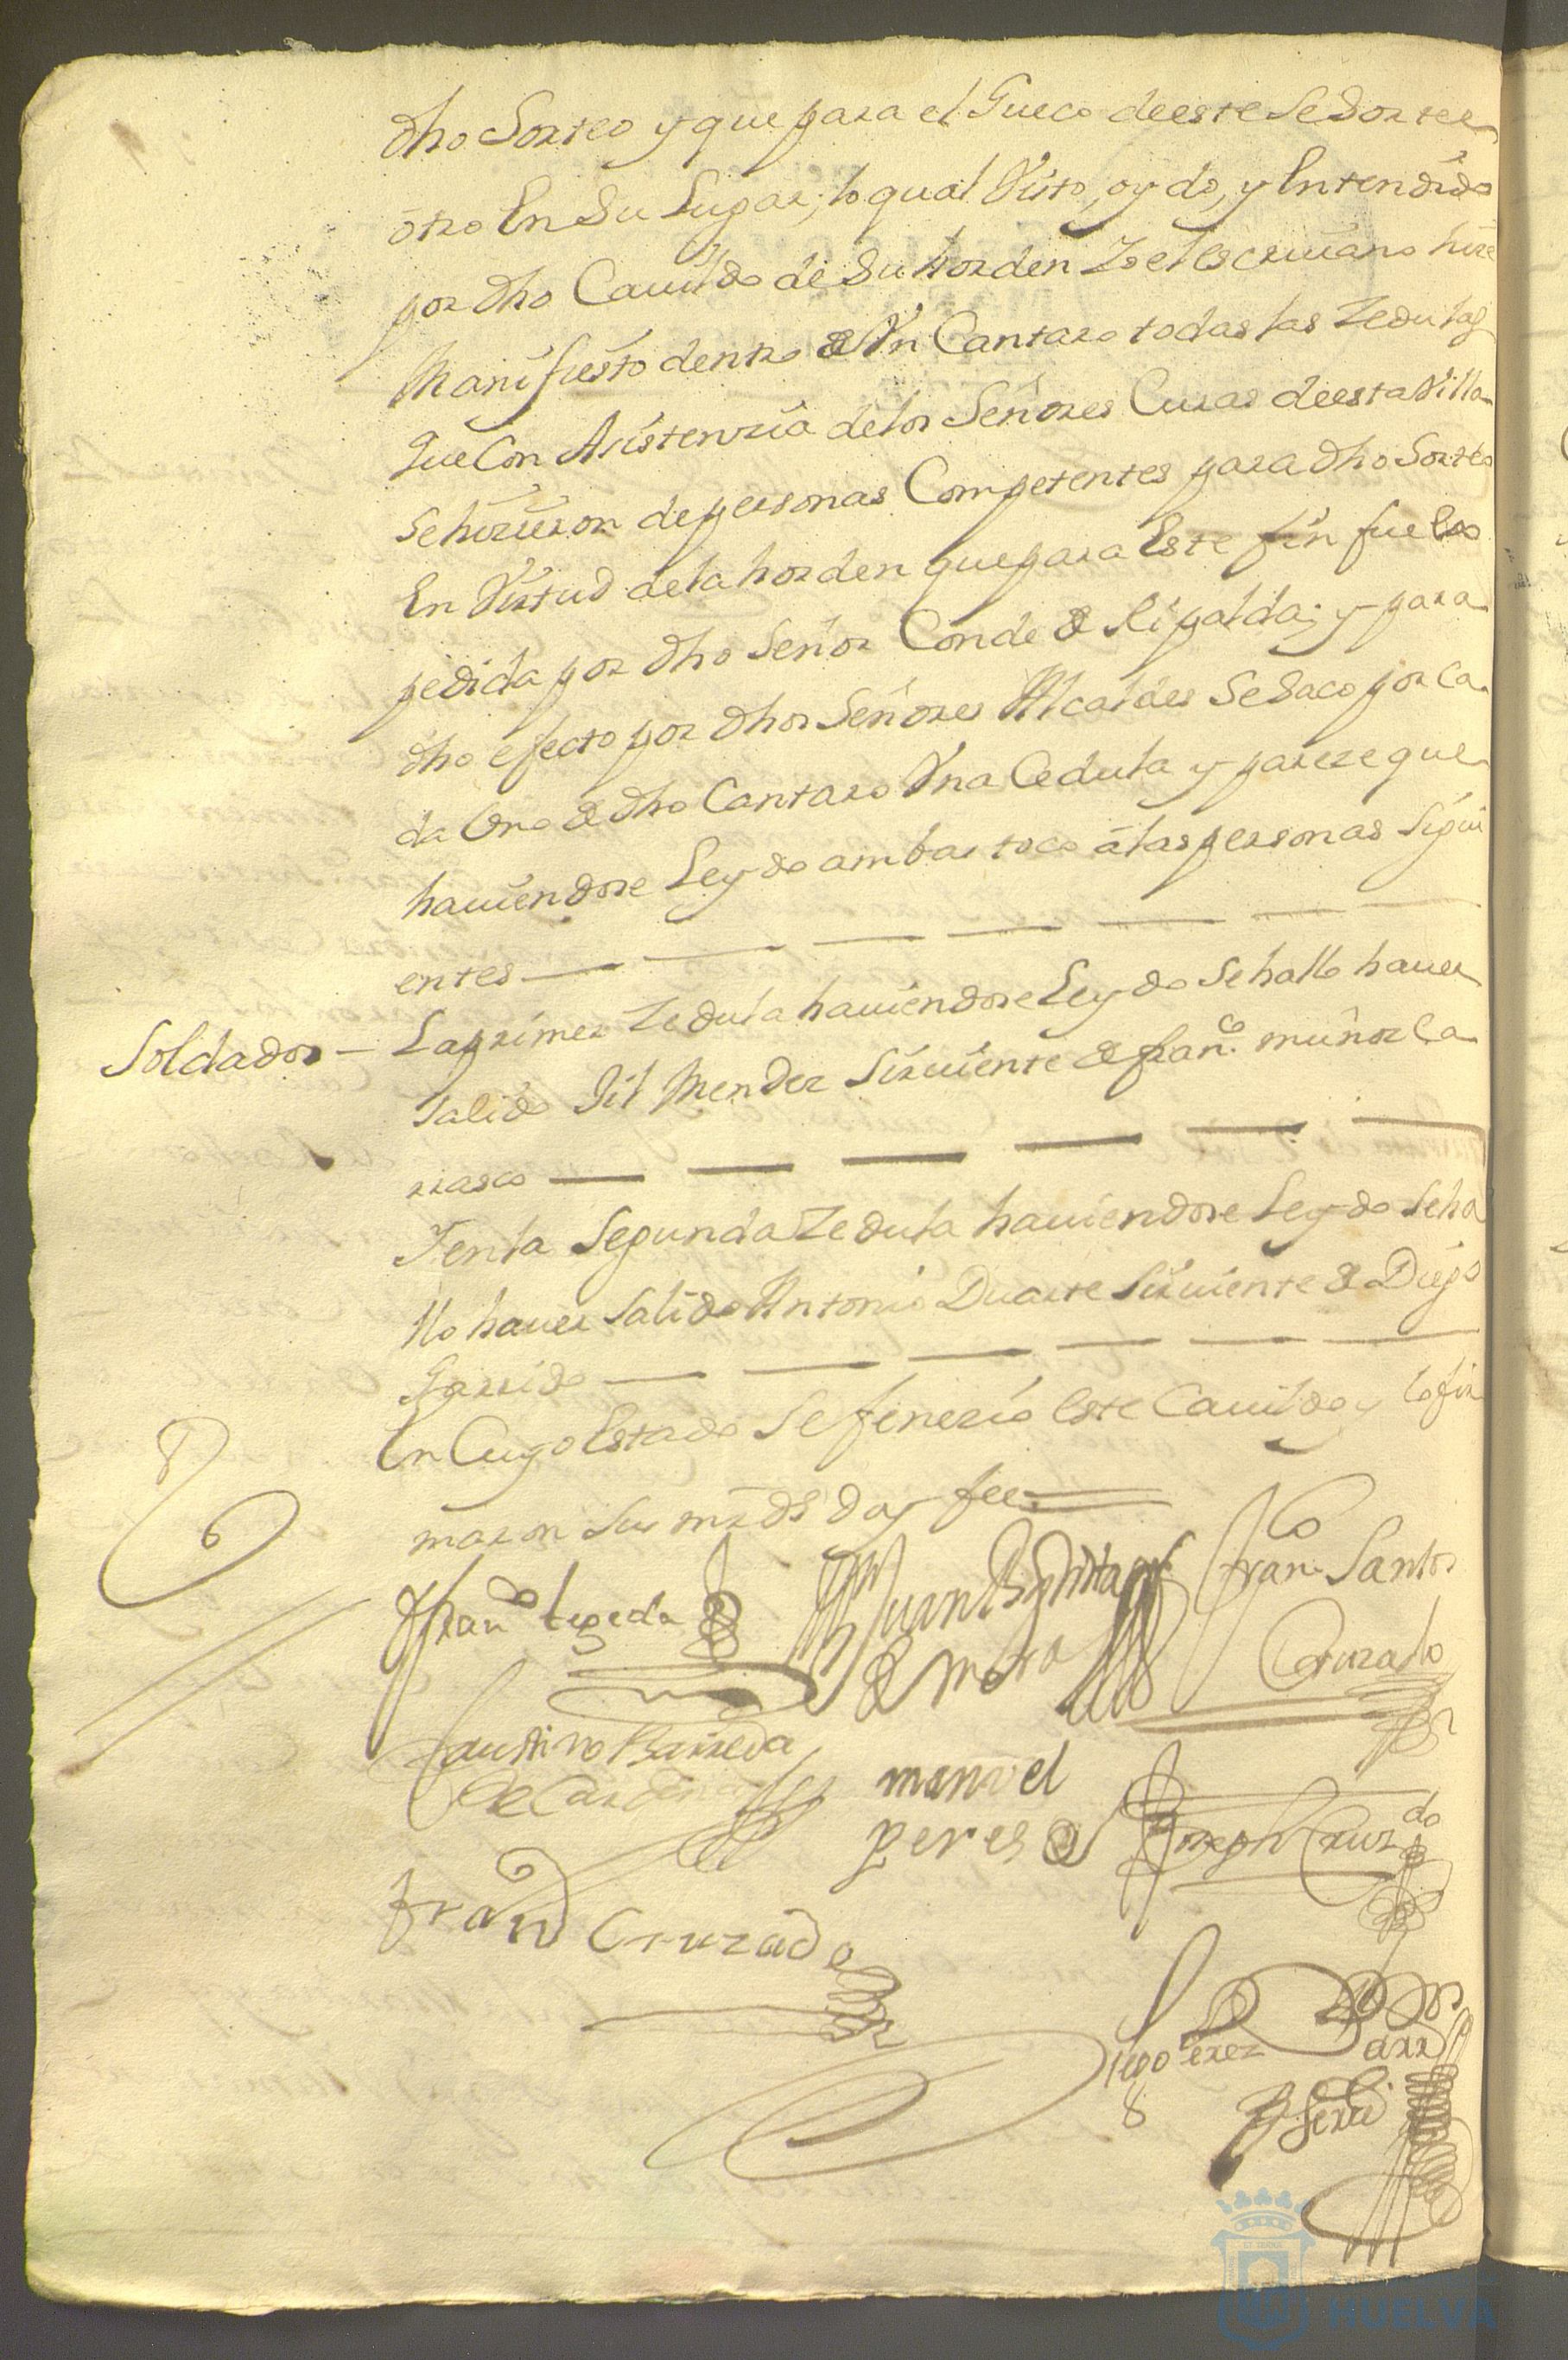 dho Sorteo y que para el Gueco de este Se Sortee
otro En Su Lugar; lo qual Visto, oydo, y Entendido
por dho Cauildo de Su horden Yo el escriuano hize
Manifiesto dentro de Vn Cantaro todas las Zedulas
que Con Asistenzia de los Señores Curas de esta Villa
se hizieron de personas Competentes para dho Sorteo
En Virtud de la horden que para Este fin fue Es
pedida por dho Señor Conde de Ripalda; y para
dho efecto por dhos Señores Alcaldes Se Saco por Ca
da Uno de dho Cantaro Vna Cedula y pareze que
hauiendose Leydo ambas toco á las personas Sigui
entes
Soldados - La primer Zedula hauiendose Leydo Se hallo hauer
Salido Gil Mendez Siruiente de Franco. muñoz Ca
rrasco
Y en la Segunda Zedula hauiendose Leydo Se ha
llo hauer Salido Antonio Duarte Siruiente de Diego
Garrido
En Cuyo Estado Se fenezio Este Cauildo y lo fir
maron Sus mrds doy fee
Juan Bautista
de Mora
Franco Santos
Cruzado
Faustino Barreda
manuel
peres
Joseph Cruzdo
Fran Cruzado
Diego Perez
HUELVA